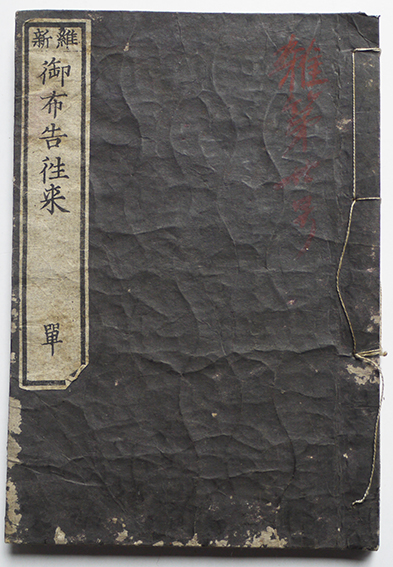 維新
御布告徃来
單